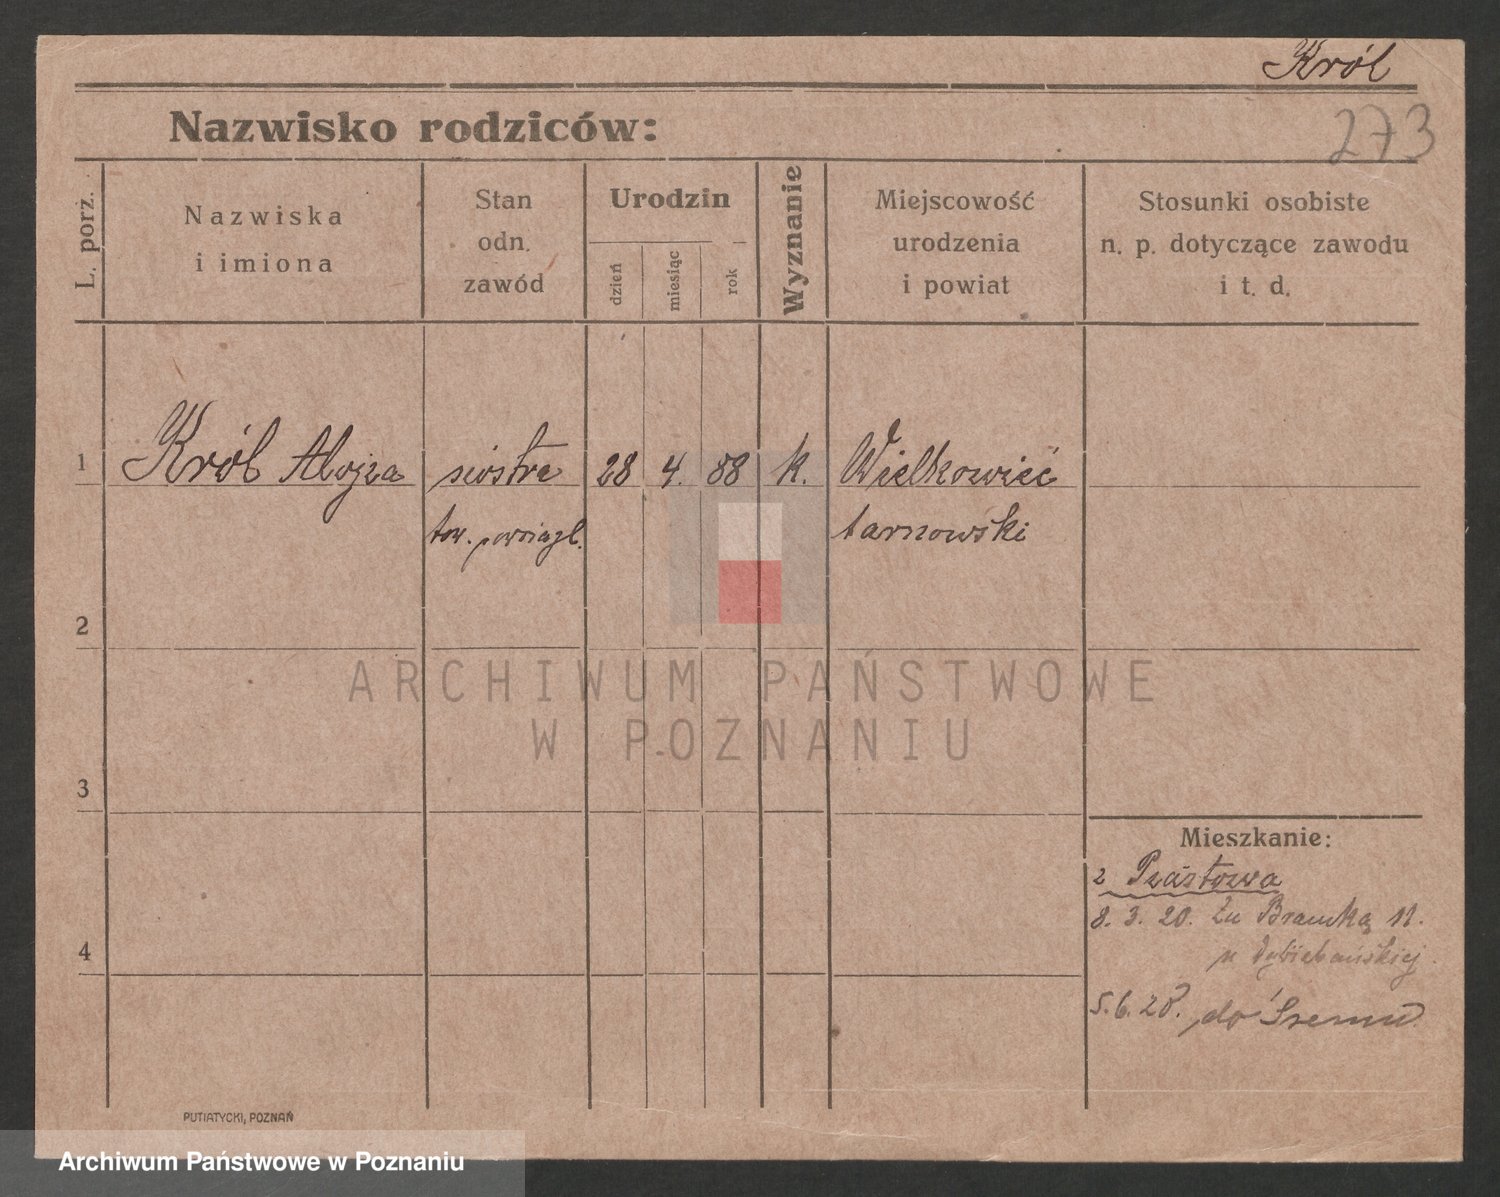 Król
273
Nazwisko rodziców:
L. porz.
Nazwiska
i imiona
Stan
odn.
zawód
Urodzin
dzień
miesiąc
rok
Wyznanie
Miejscowość
urodzenia
i powiat
Stosunki osobiste
n. p. dotyczące zawodu
i t. d.
1 Król Alojza siostra 28 4. 88 k. Wielkowieć
tow. tarnowski
2
ARCHIWUM PAŃSTWOWE
W POZNANIU
3
Mieszkanie:
2 Piastowa
8. 3. 20. Za Bramką 11.
4
5. 6. 28. do Śremu
PUTIATYCKI, POZNAŃ
Archiwum Państwowe w Poznaniu